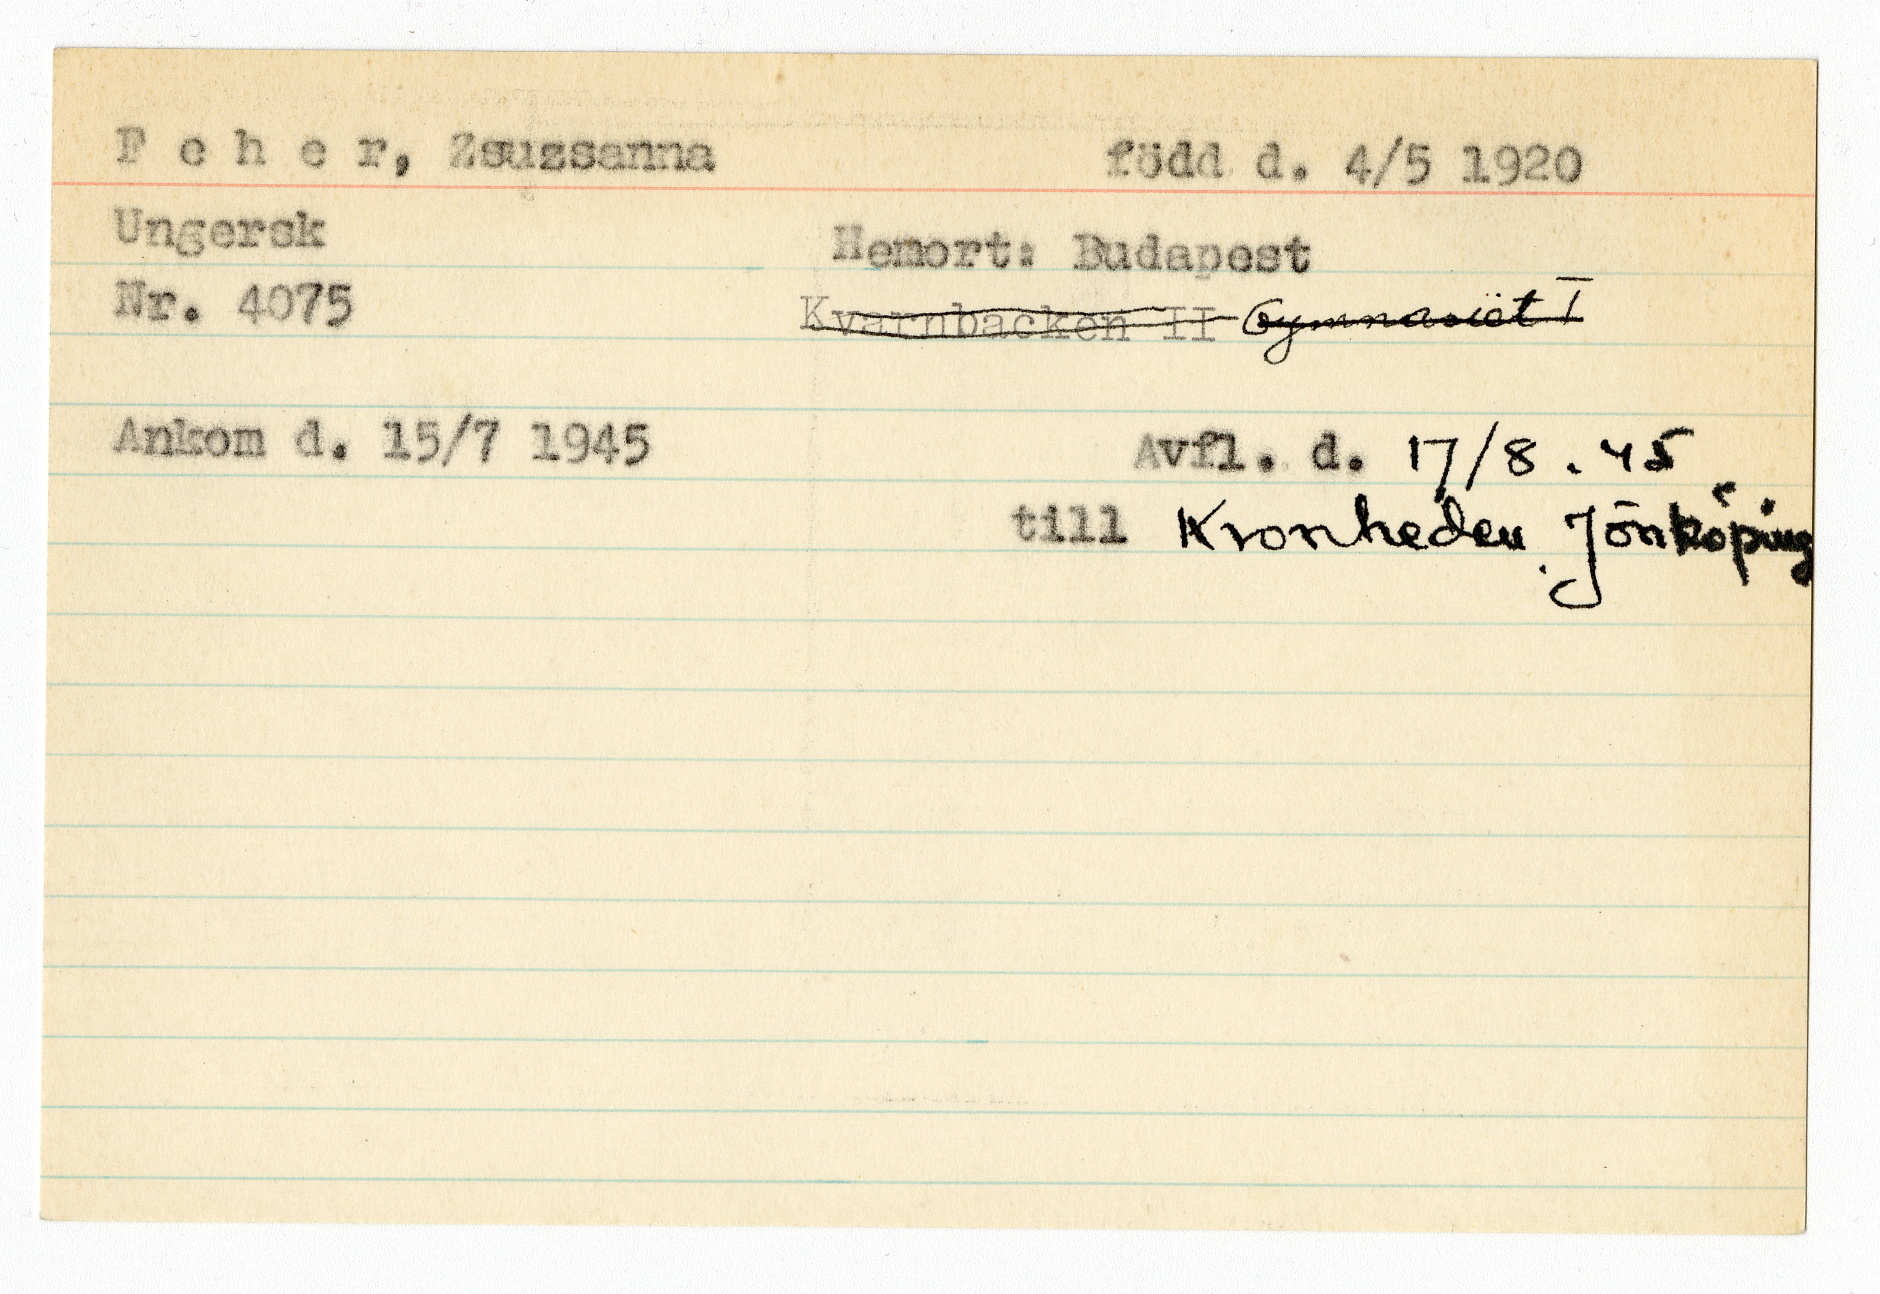 F e h e r, Zsuzsanna född d. 4/5 1920
Ungersk Hemort: Budapest
Nr. 4075 Kvarnbacken II Gymnasiet I
Ankom d. 15/7 1945 Avfl. d. 17/8. 45
till Kronheden Jönköping